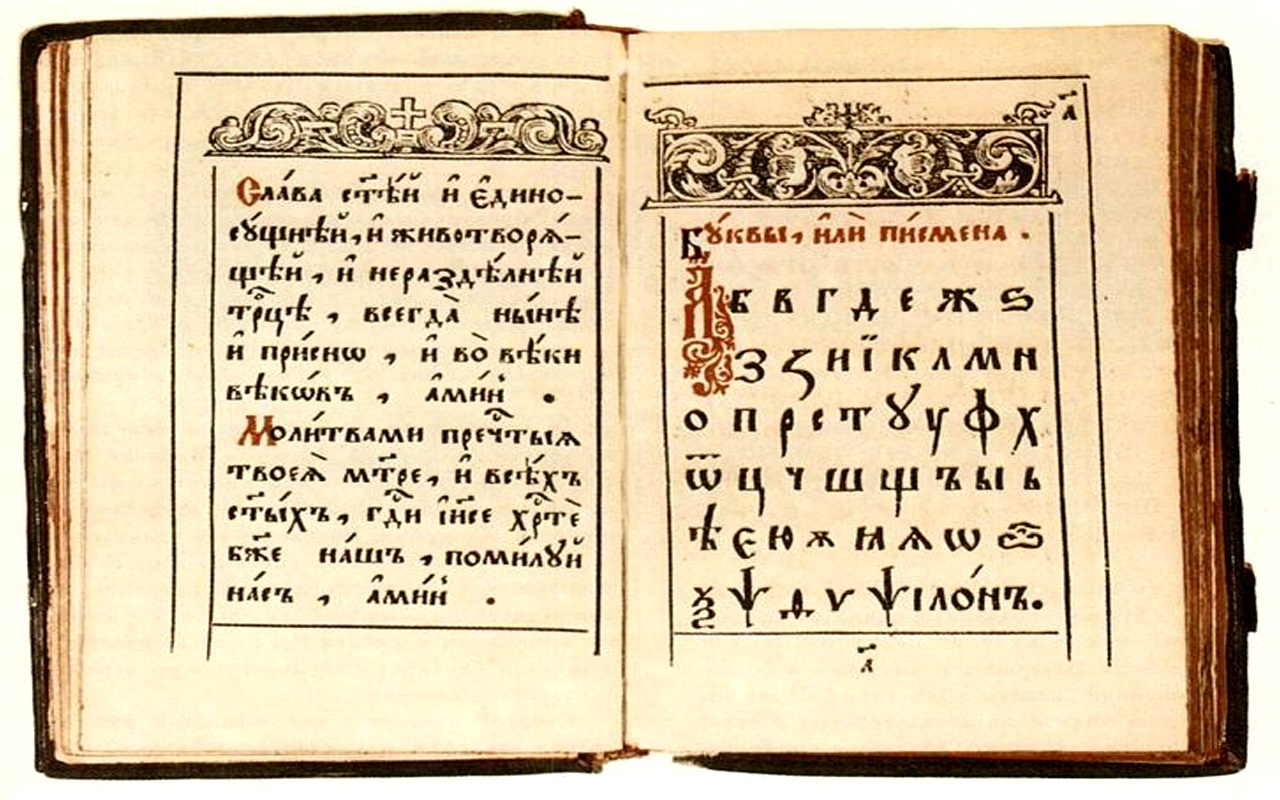 Сла́ва ст҃ѣ́й и҆ є҆дино-
сꙋ́щнѣй, и҆ животворѧ́-
щѣй, и҆ нераздѣ́лнѣй
трⷪ҇цѣ, всегда̀ ны́нѣ
и҆ при́снѡ, и҆ во̀ вѣ́ки
вѣкѡ́въ, а҆ми́нь.
Моли́твами пречⷭ҇тыѧ
твоеѧ̀ мт҃ре, и҆ всѣ́хъ
ст҃ы́хъ, гдⷭ҇и і҆и҃се хрⷭ҇тѐ
бж҃е на́шъ, поми́лꙋй
на́съ, а҆ми́нь.
а҃
Бꙋ́квы, и҆лѝ пи́смена.
А б в г д е ж ѕ
з ꙁ и ї к л м н
о п р с т ꙋ у ф х
ѿ ц ч ш щ ъ ы ь
ѣ є ю ѫ ꙗ ѧ ѡ
ѯ ѱ ѳ ѵ ѱіло́нъ.
а҃